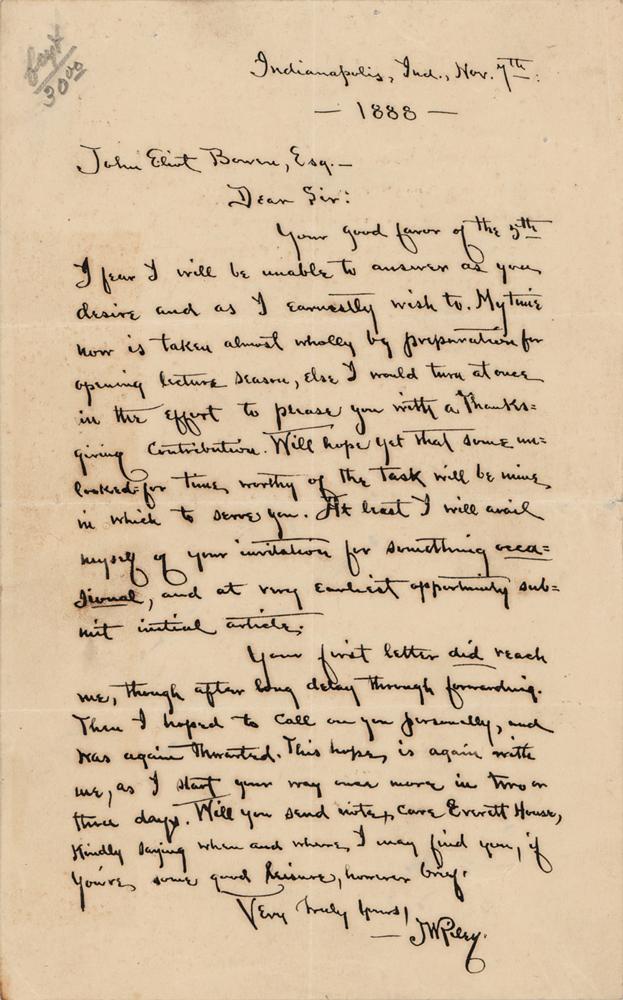 30.00
Indianapolis, Ind., Nov. 7th:
— 1888 —
John Eliot Bowen, Esq.—
Dear Sir:
Your good favor of the 5th
I fear I will be unable to answer as you
desire and as I earnestly wish to. My time
now is taken almost wholly by preparation for
opening lecture season, else I would turn at once
in the effort to please you with a Thanks=
giving contribution. Will hope yet that some un=
looked-for time, worthy of the task will be mine,
in which to serve you. At least I will avail
myself of your invitation for something occa=
sional, and at very earliest opportunity sub=
mit initial article.
Your first letter did reach
me, though after long delay through forwarding.
Then I hoped to call on you personally, and
was again thwarted. This hope, is again with
me, as I start your way once more in two or
three days. Will you send note, care Everett House,
kindly saying when and where, I may find you, if
You've, some good leisure, however brief.
Very truly yours,
— JWRiley.